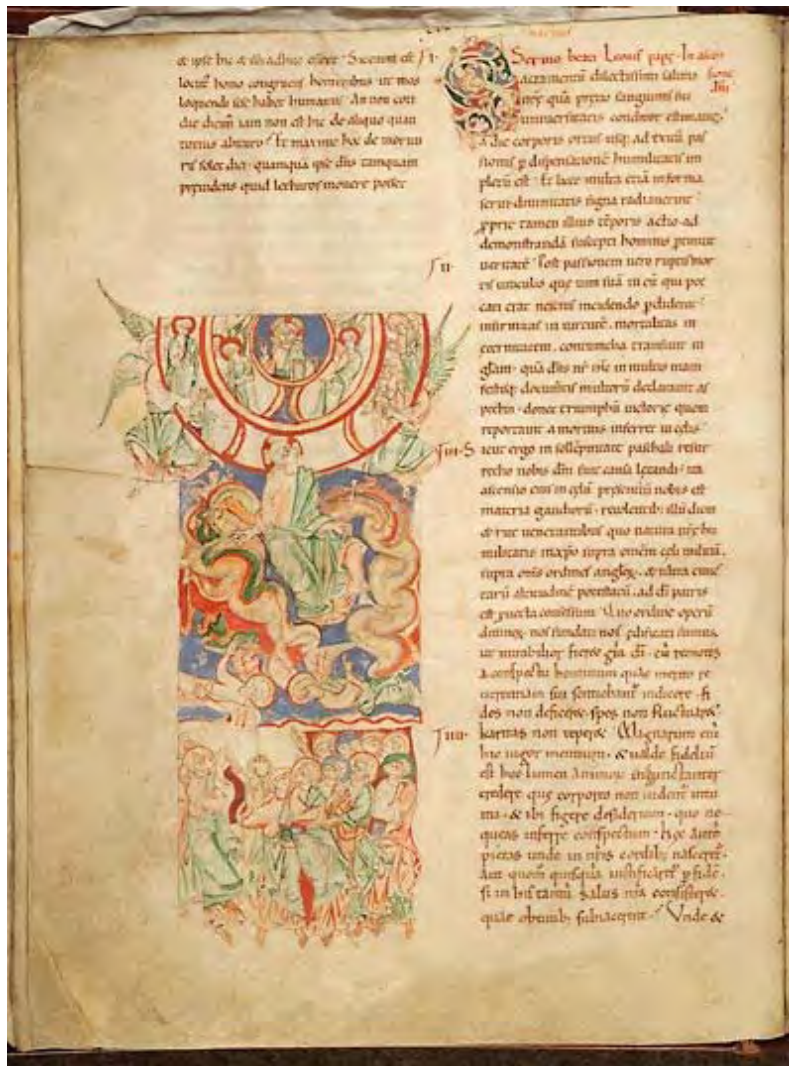 et ipse hic & illi adhuc essent. Secutus est
locutꝰ homo congruens hominibus ut mos
loquendi sese habet humanus. An non coti
die dicim iam non est hic de aliquo quan
tocius abituro? Et maxime hoc de moritu
ris solet dici. quamquā ipse dn̄s tamquam
quid lecturos movere posset
Sermo beati Leonis pape. In ascen
sione
dn̄i
Sacramentū dilectissimi salutis
nr̄ę quā precio sanguinis sui
universitatis conditor estimavit.
a die corporis ortus usq; ad exitū pas
sionis p dispensationē humilitatis im
pletū est. Et licet multa etiā in forma
servi divinitatis signa radiaverint
pprie tamen illius tēporis actio ad
demonstrandā suscepti hominis ptinuit
II
veritatē. Post passionem vero ruptis mor
tis vinculis que vim suā in eū qui pec
cati erat nescius incidendo pdiderat
infirmitas in virtutē. mortalitas in
eternitatem. contumelia transivit in
gl̄am. quā dn̄s
documtis multorū declaravit as
pectib. donec triumphū victorię quem
reportarat a mortuis inferret in celis
III Sicut ergo in sollēpnitate paschali resur
rectio nobis dn̄i fuit causa lętandi. ita
ascensio eius in cęlū presentiū nobis est
materia gaudiorū. recolentib; illū diem
& rite venerantibus quo natura nr̄ę hu
militatis in xp̄o supra omnem cęli militiā.
supra om̄s ordines angloꝝ. & ultra cunc
tarū altitudinē potestatū. ad dī patris
est pvecta consessum. Quo ordine operū
divinoꝝ. nos fundati nos ędificati sumus.
ut mirabilior fieret gr̄a dī. cū remotis
a conspectu hominum quae merito re
verentiam sui sentiebant indicere. fi
des non deficeret. spes non fluctuaret
IIII karitas non teperet. Magnarum enī
hic vigor mentium. & valde fideliū
est hoc lumen animarum incunctanter
credere que corporeo non videnť intu
itu. & ibi figere desiderium. quo ne
queas inferre conspectum. hęc autē
pietas unde in nr̄is cordib; nasceret.
aut quom quisquā iustificaret p fidē.
si in his tantū salus nr̄a consisteret.
quae obtutib; subiacerent? Unde &